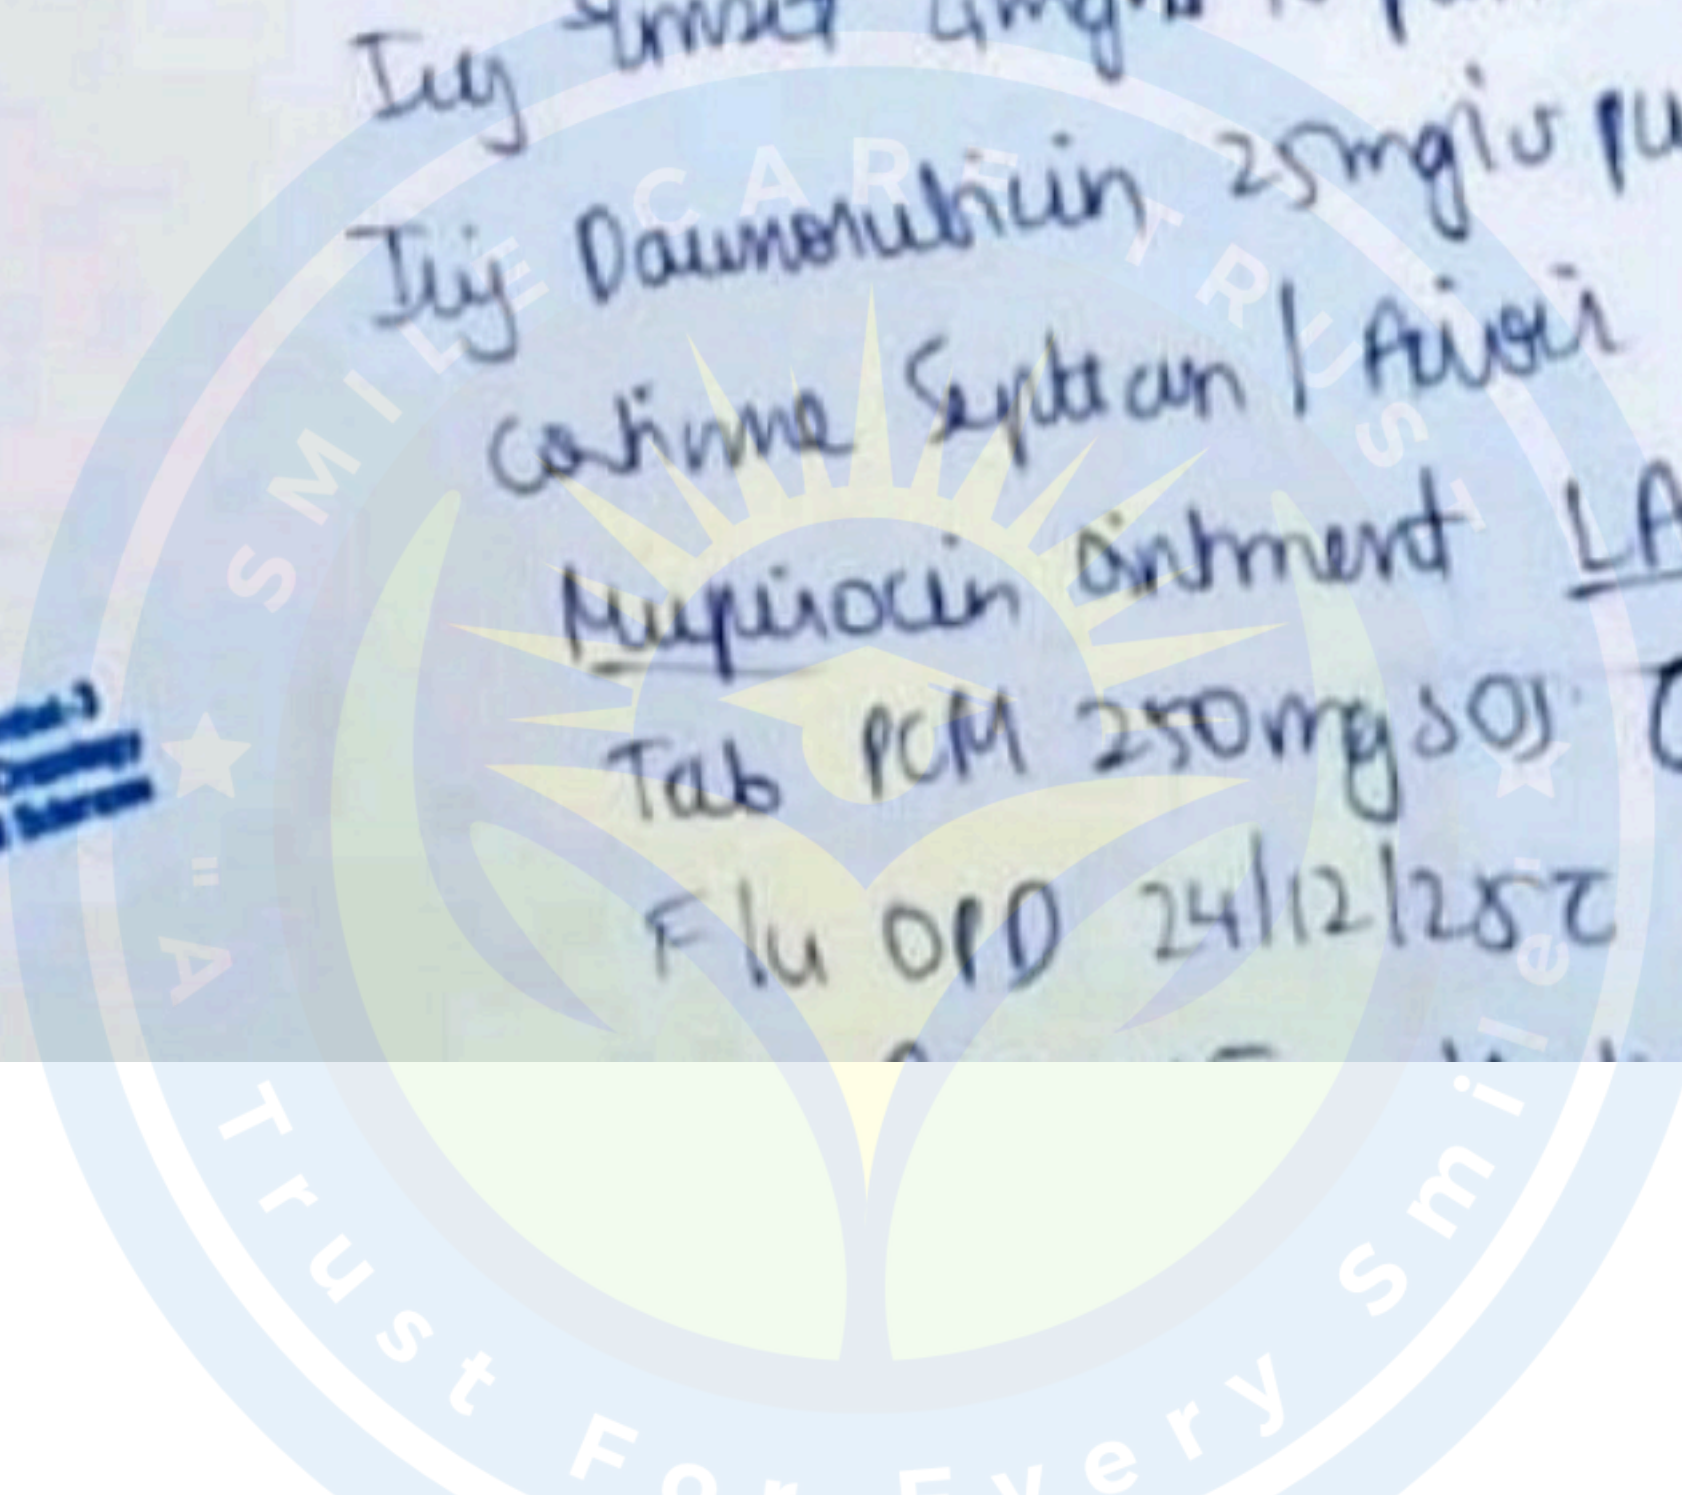 Inj Emset 4mg
Inj Daunorubicin 25mg iv pu
Continue Septran /
Mupirocin ointment LA
Tab PCM 250mg SOS
F/u OPD 24/12/25 c
SMILE CARE TRUST
"A Trust For Every Smile"